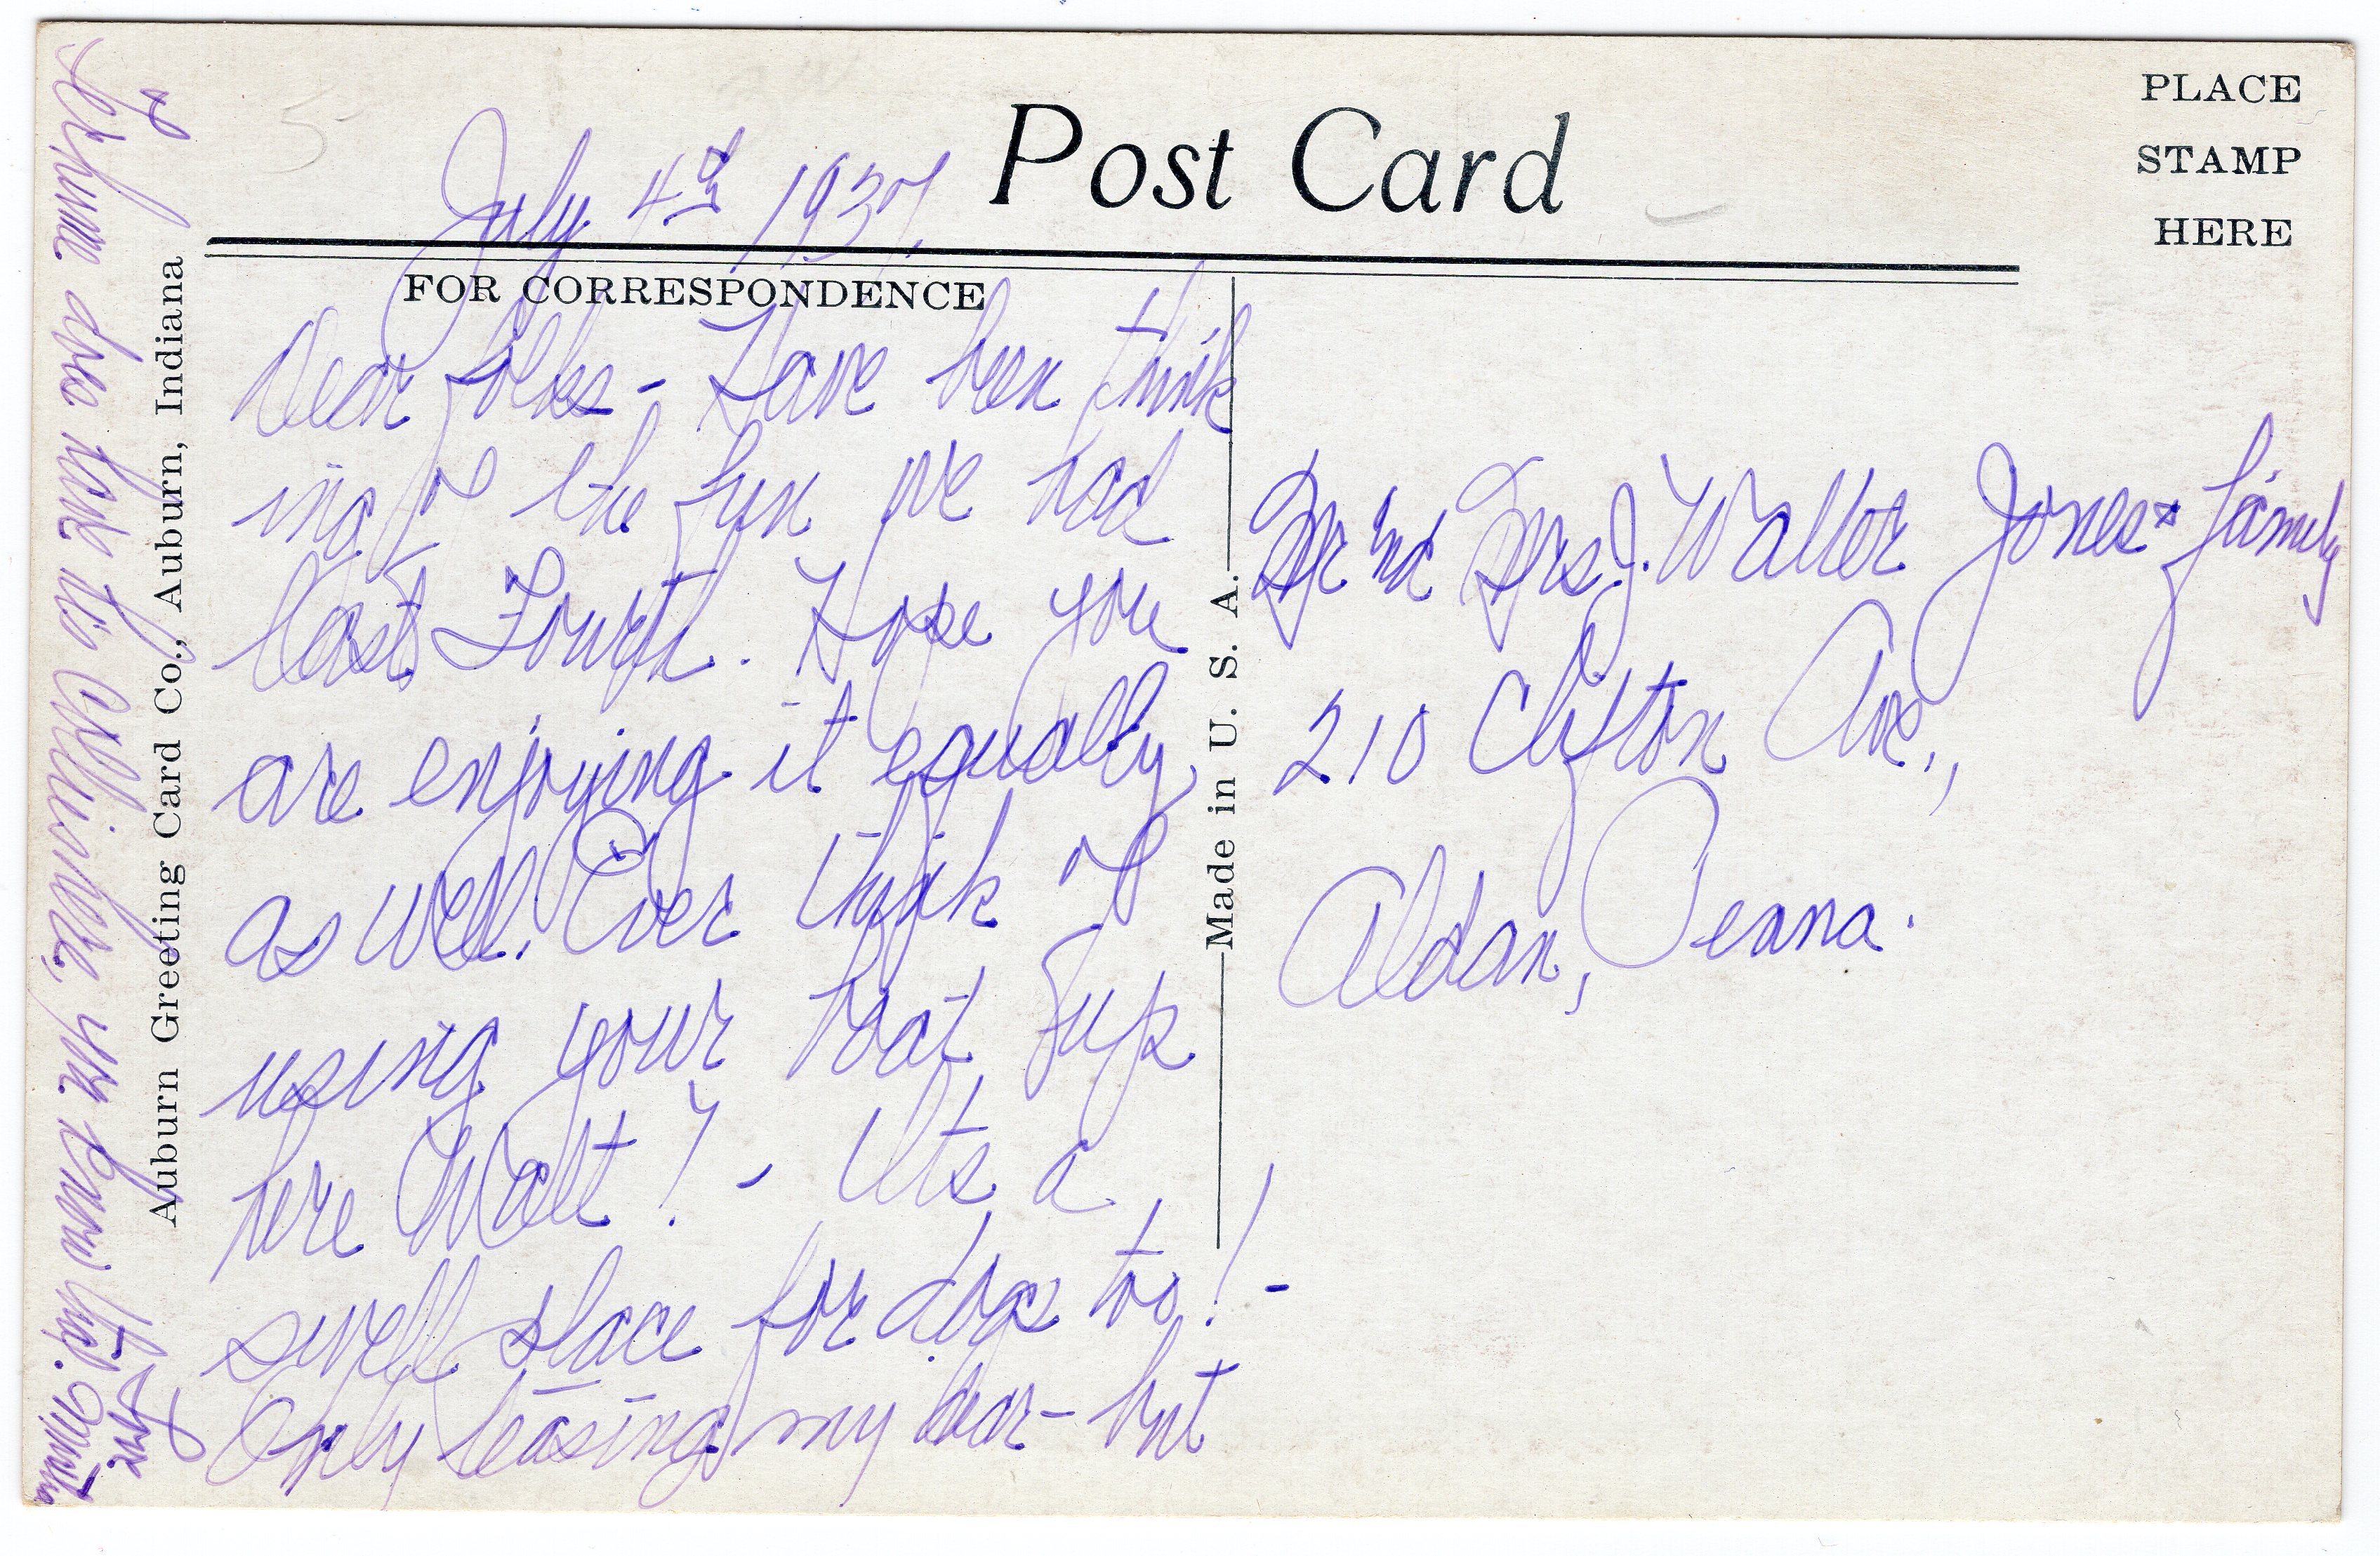 July 4th 1937
Post Card
PLACE
STAMP
HERE
FOR CORRESPONDENCE
Dear folks - Have been think
ing of the fun we had
last Fourth. Hope you
are enjoying it equally
as well. Ever think of
using your boat up
here Walt? - It's a
swell place for dogs too! -
Only teasing my dear - but
does have its
you know
Love
Mr and Mrs. J. Walter Jones & family
210 Clifton Ave.,
Aldan, Penna.
Auburn Greeting Card Co., Auburn, Indiana
Made in U. S. A.